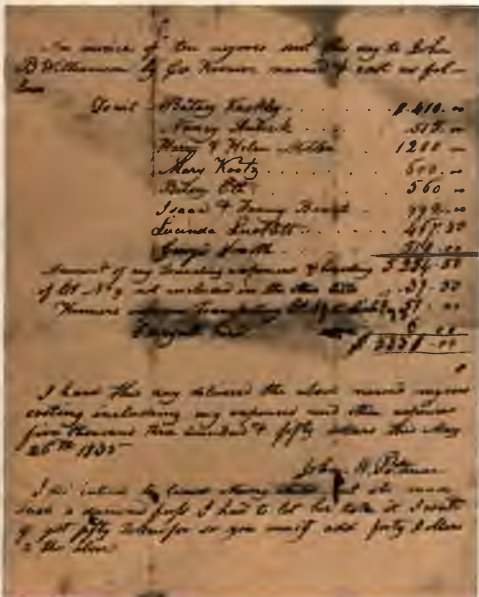 An invoice of ten negroes sent this day to John
B Williamson by Geo Kremer named & cost as fol-
lows
To wit Betsey Kackley . . . $ 410.00
Nancy Aulick . . . 515.00
Harry & Helen Miller . . . 1200.00
Mary Kootz . . . 600.00
Betsey Ott . . . 560.00
Isaac & Fanny Brent . . . 992.00
Lucinda Luckett . . . 467.50
George Smith . . . 510.00
Amount of my traveling expenses & boarding 5 254.50
of lot No 9 not included in the other bills . 39.50
Kremers Transporting lot 51.00
Carryall hire 6.00
$ 5351.00
I have this day delivered the above named negroes
costing including my expenses and other expenses
five thousand three hundred & fifty dollars this May
26th 1835
John W. Pittman
I did intend to leave Nancy child but she made
such a damned fuss I had to let her take it I could
of got fifty Dollars for so you must add forty Dollars
to the above